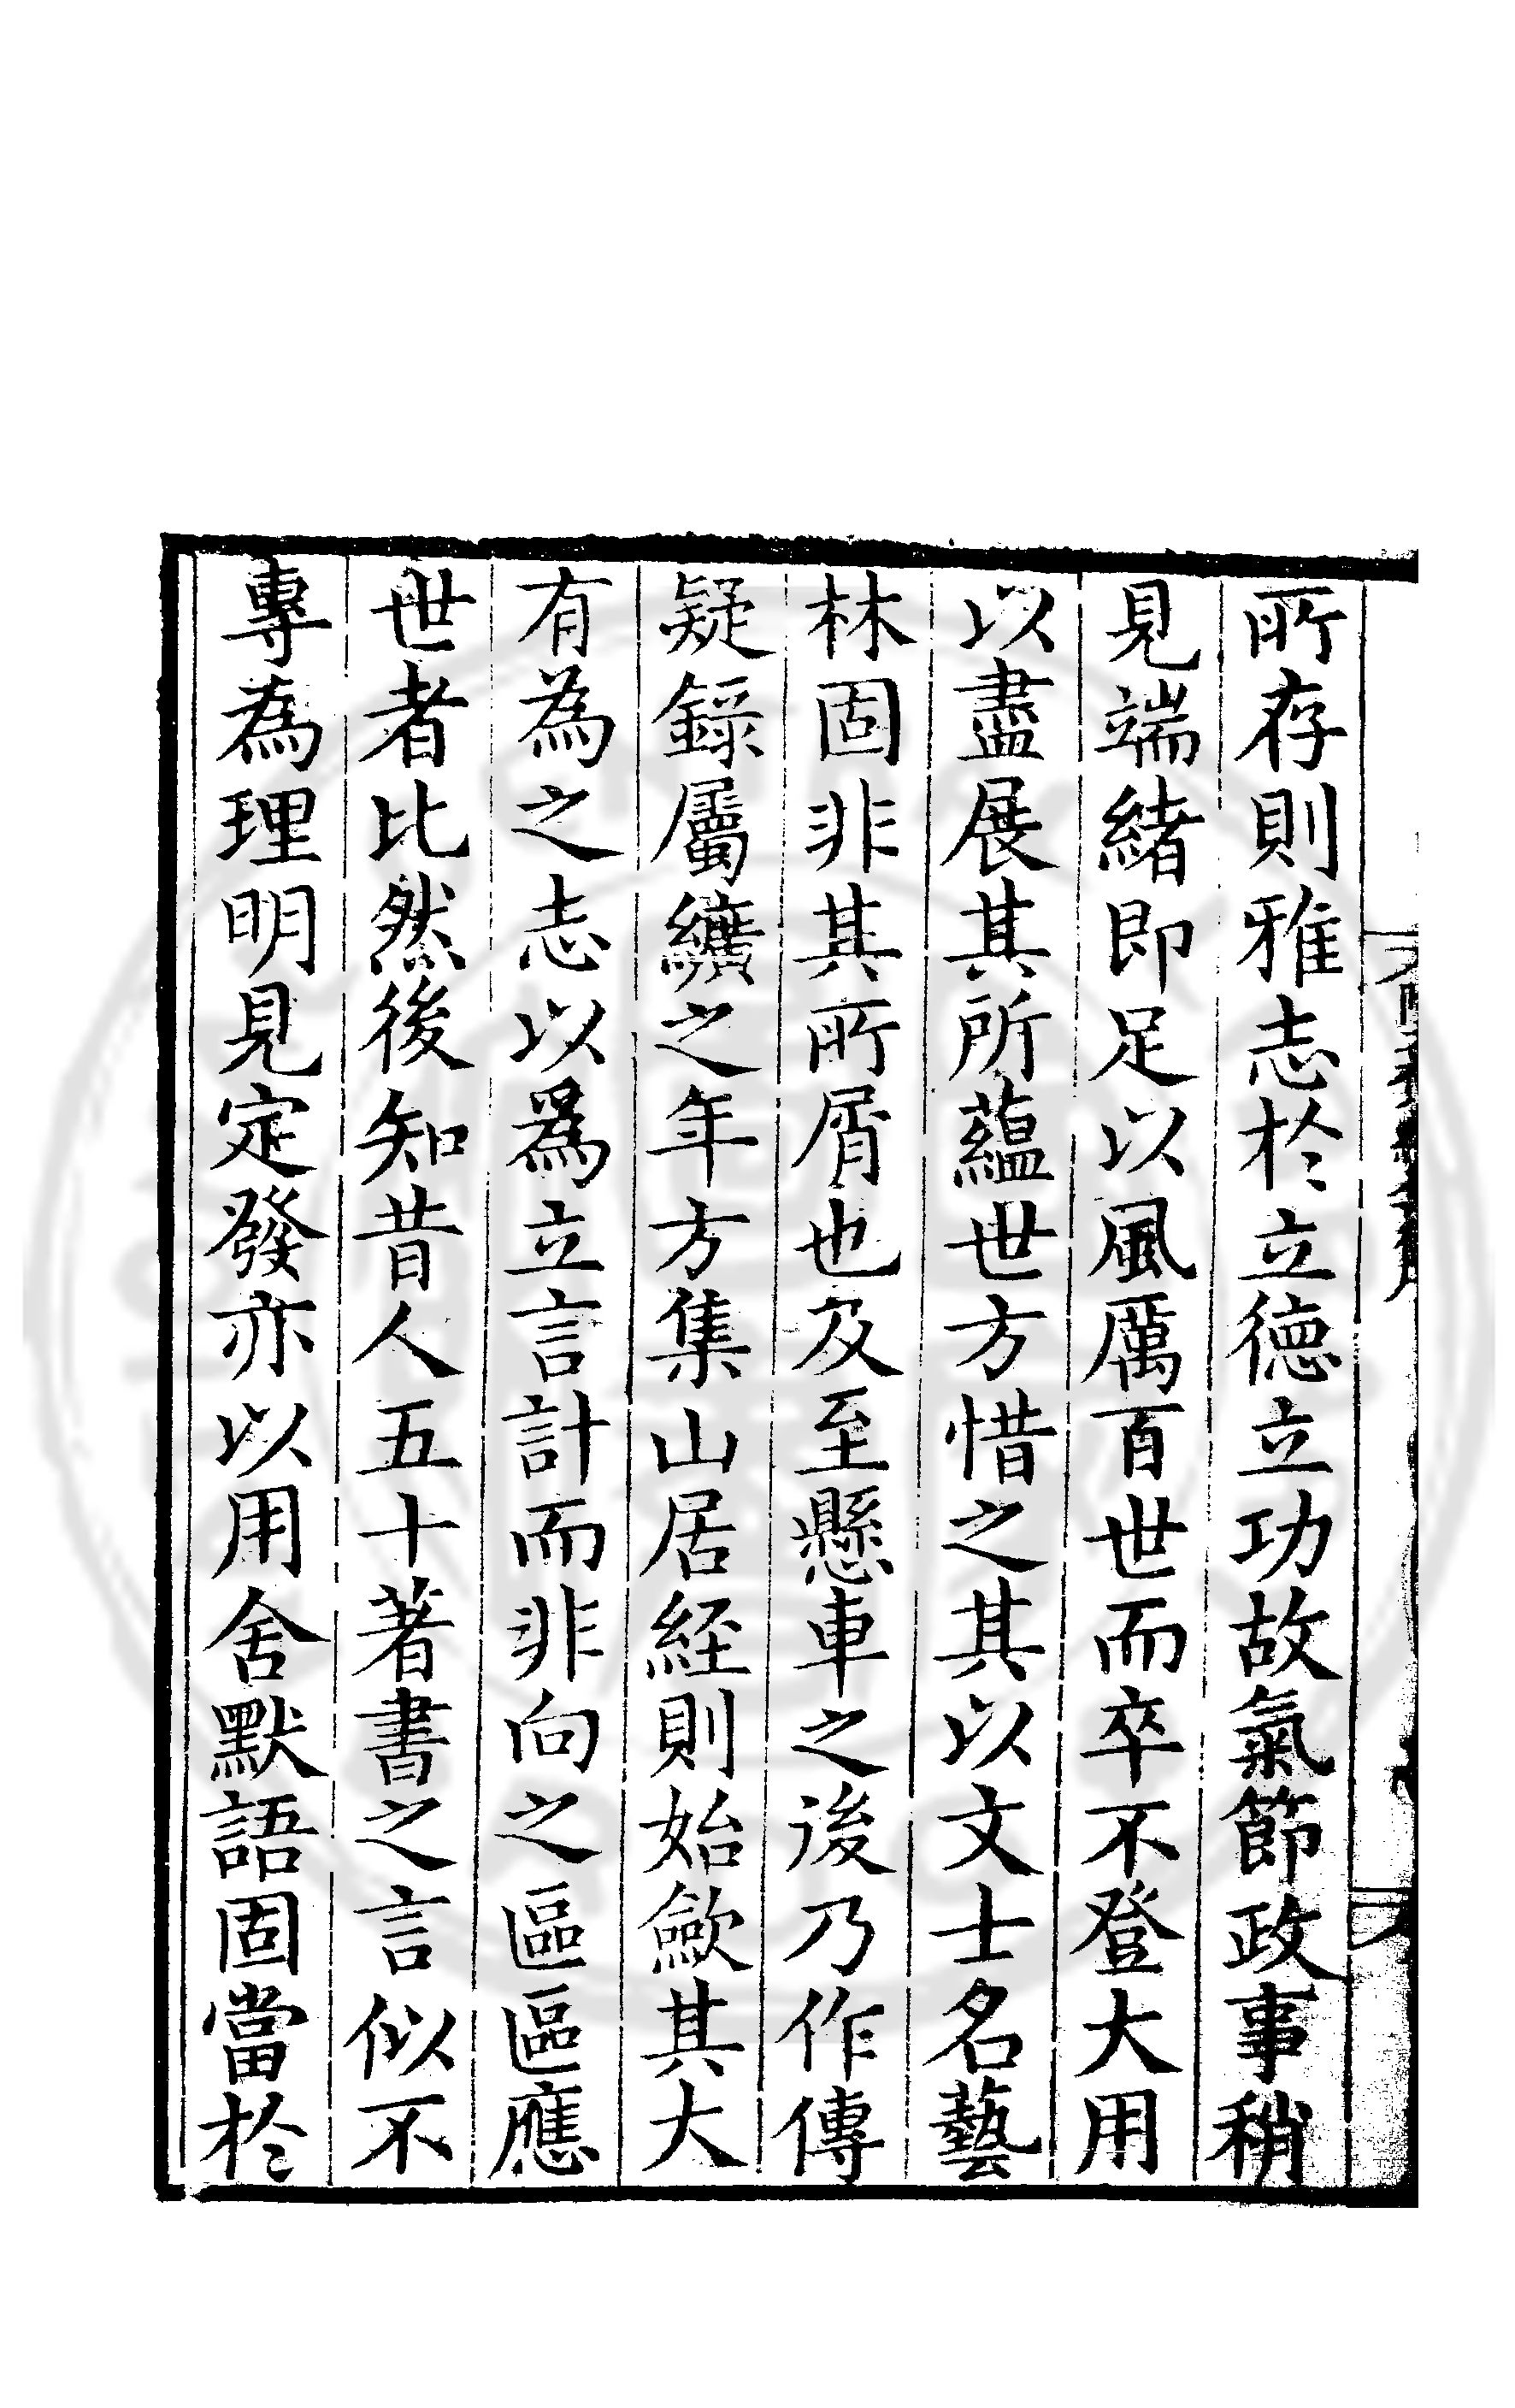 所存則雅志於立德立功故氣節政事稍
見端緒即足以風厲百世而卒不登大用
以盡展其所蘊世方惜之其以文士名藝
林固非其所屑也及至懸車之後乃作傳
疑錄屬纊之年方集山居経則始歛其大
有為之志以爲立言計而非向之區區應
世者比然後知昔人五十著書之言似不
專為理明見定發亦以用舍默語固當於